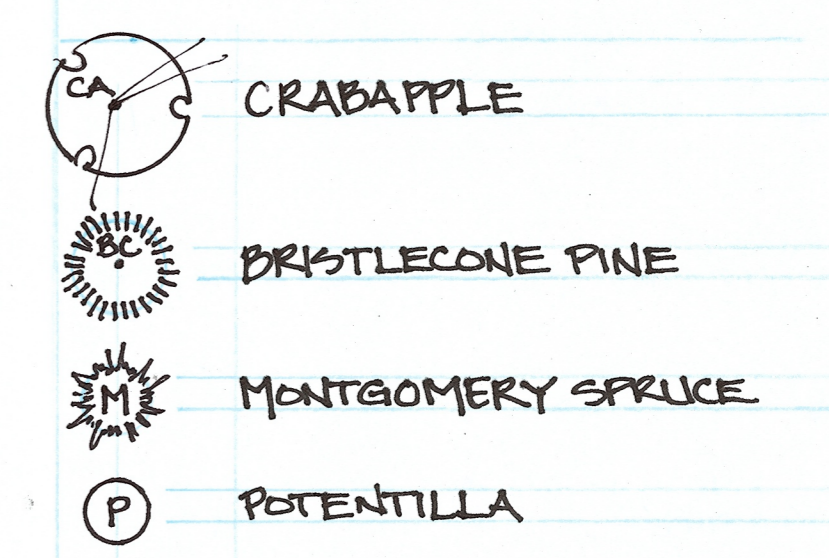 CA CRABAPPLE
BC BRISTLECONE PINE
M MONTGOMERY SPRUCE
P POTENTILLA